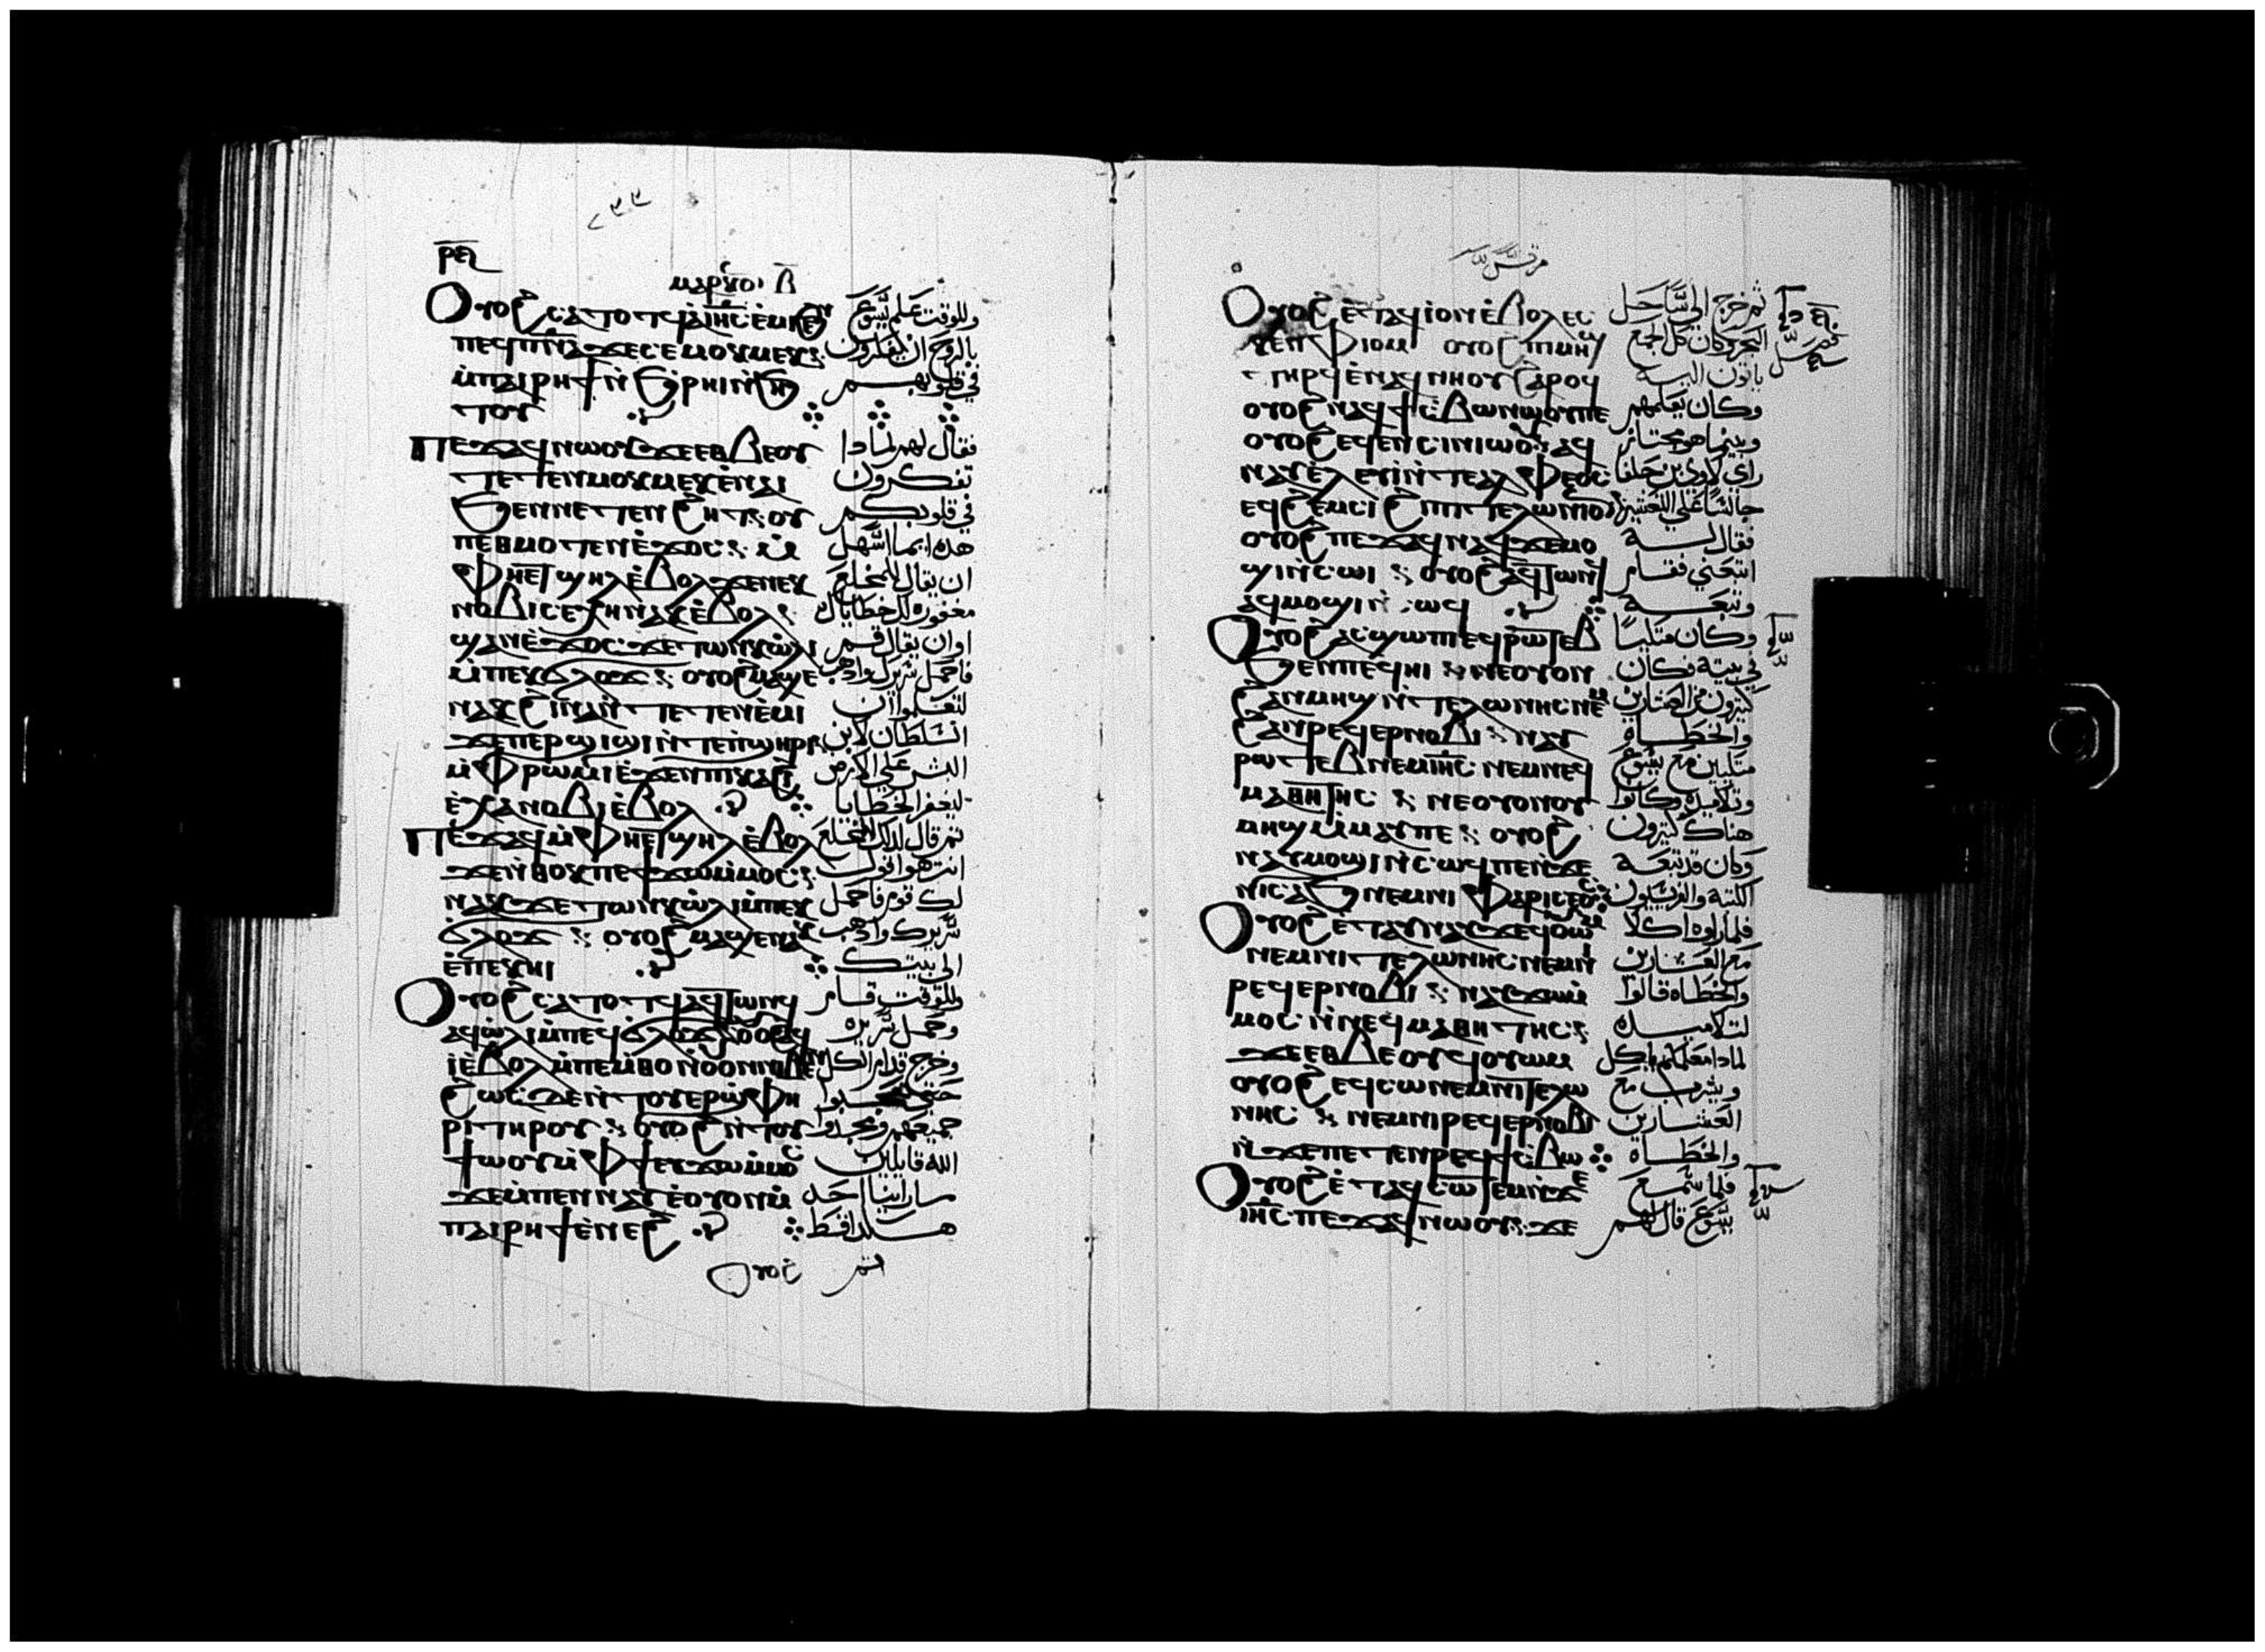 ⲣⲉ
ⲙⲁⲣⲕⲟⲥ ⲃ
Ⲟⲩⲟϩ ⲥⲁⲧⲟⲧϥ ⲁⲓⲏⲥ ⲉⲙⲓ ϧⲉⲛ
ⲡⲉϥⲡⲛⲁ ϫⲉ ⲥⲉⲙⲟⲕⲙⲉⲕ
ⲙⲡⲁⲓⲣⲏϯ ⲛϧⲣⲏⲓ ⲛϧⲏ
ⲧⲟⲩ
Ⲡⲉϫⲁϥ ⲛⲱⲟⲩ ϫⲉ ⲉⲑⲃⲉⲟⲩ
ⲧⲉⲧⲉⲛⲙⲟⲕⲙⲉⲕ ⲉⲛⲁⲓ
ϧⲉⲛ ⲛⲉⲧⲉⲛϩⲏⲧ ⲟⲩ
ⲡⲉⲑⲙⲟⲧⲉⲛ ⲉϫⲟⲥ ⲙ
ⲫⲏⲉⲧϣⲏⲗ ⲉⲃⲟⲗ ϫⲉ ⲛⲉⲕ
ⲛⲟⲃⲓ ⲥⲉⲭⲏ ⲛⲁⲕ ⲉⲃⲟⲗ
ϣⲁⲛ ⲉϫⲟⲥ ϫⲉ ⲧⲱⲛⲕ ⲱⲗⲓ
ⲙⲡⲉⲕϭⲗⲟϫ ⲟⲩⲟϩ ⲙⲁϣⲉ
ⲛⲁⲕ ϩⲓⲛⲁ ⲛⲧⲉⲧⲉⲛⲉⲙⲓ
ϫⲉ ⲡⲉⲣϣⲓϣⲓ ⲛⲧⲉ ⲡϣⲏⲣⲓ
ⲙⲫⲣⲱⲙⲓ ⲉϫⲉⲛ ⲡⲓⲕⲁϩⲓ
ⲉⲭⲁ ⲛⲟⲃⲓ ⲉⲃⲟⲗ
Ⲡⲉϫⲁϥ ⲙⲫⲏⲉⲧϣⲏⲗ ⲉⲃⲟⲗ
ϫⲉ ⲛⲑⲟⲕ ⲡⲉϯϫⲱ ⲙⲙⲟⲥ
ⲛⲁⲕ ϫⲉ ⲧⲱⲛⲕ ⲱⲗⲓ ⲙⲡⲉⲕ
ϭⲗⲟϫ ⲟⲩⲟϩ ⲙⲁϣⲉ ⲛⲁⲕ
ⲉⲡⲉⲕⲏⲓ
Ⲟⲩⲟϩ ⲥⲁⲧⲟⲧϥ ⲁϥⲧⲱⲛϥ
ⲁϥⲱⲗⲓ ⲙⲡⲉϥϭⲗⲟϫ ⲁϥ
ⲓ ⲉⲃⲟⲗ ⲙⲡⲉⲙⲑⲟ ⲛⲟⲩⲟⲛ ⲛⲓⲃⲉⲛ
ϩⲱⲥ ϫⲉ ⲛⲧⲟⲩⲉⲣϣⲫⲏ
ⲣⲓ ⲧⲏⲣⲟⲩ ⲟⲩⲟϩ ⲛⲧⲟⲩ
ϯⲱⲟⲩ ⲙⲫϯ ⲉⲩϫⲱ ⲙⲙⲟⲥ
ϫⲉ ⲙⲡⲉⲛⲛⲁⲩ ⲉⲟⲩⲟⲛ ⲙ
ⲡⲁⲓⲣⲏϯ ⲉⲛⲉϩ
ⲟⲩⲟϩ
وللوقت علم يسوع
بالروح ان يفكرون
في قلوبهم
فقال لهم لماذا
تفكرون
في قلوبكم
هذه ايما اسهل
ان يقال للمخلع
مغفورة لك خطاياك
او ان يقال قم
فاحمل سريرك واذهب
لتعلموا ان
السلطان لابن
البشر علي الارض
ليغفر الخطايا
ثم قال لذلك المخلع
انت هو اقول
لك قوم فاحمل
سريرك واذهب
الي بيتك
وللوقت قام
وحمل سريره
وخرج قدام الكل
جميعهم ومجدوا
الله قايلين
ما راينا احد
هكذا قط
ثم
مرقس
Ⲟⲩⲟϩ ⲉⲧⲁϥⲓ ⲟⲛ ⲉⲃⲟⲗ ⲉⲥ
ⲕⲉⲛ ⲫⲓⲟⲙ ⲟⲩⲟϩ ⲡⲓⲙⲏϣ
ⲧⲏⲣϥ ⲉⲛⲁϥⲛⲏⲟⲩ ϩⲁⲣⲟϥ
ⲟⲩⲟϩ ⲛⲁϥϯⲥⲃⲱ ⲛⲱⲟⲩ ⲡⲉ
ⲟⲩⲟϩ ⲉϥⲉⲛⲥⲓⲛⲓⲱⲟⲩ ⲁϥ
ⲛⲁⲩ ⲉⲗⲉⲩⲓ ⲛⲧⲉ ⲁⲗⲫⲉⲟⲥ
ⲉϥϩⲉⲙⲥⲓ ϩⲓ ⲡⲓⲧⲉⲗⲱⲛⲓⲟⲛ
ⲟⲩⲟϩ ⲡⲉϫⲁϥ ⲛⲁϥ ϫⲉ ⲙⲟ
ϣⲓ ⲛⲥⲱⲓ ⲟⲩⲟϩ ⲁϥⲧⲱⲛϥ
ⲁϥⲙⲟϣⲓ ⲛⲥⲱϥ
Ⲟⲩⲟϩ ⲁⲥϣⲱⲡⲓ ⲉϥⲣⲱⲧⲉⲃ
ϧⲉⲛ ⲡⲉϥⲏⲓ ⲛⲉ ⲟⲩⲟⲛ
ϩⲁⲛⲙⲏϣ ⲛⲧⲉⲗⲱⲛⲏⲥ ⲛⲉⲙ
ϩⲁⲛⲣⲉϥⲉⲣⲛⲟⲃⲓ ⲛⲁⲩ
ⲣⲱⲧⲉⲃ ⲛⲉⲙ ⲓⲏⲥ ⲛⲉⲙ ⲛⲉϥ
ⲙⲁⲑⲏⲧⲏⲥ ⲛⲉ ⲟⲩⲟⲛ ⲟⲩ
ⲙⲏϣ ⲙⲙⲁⲩ ⲡⲉ ⲟⲩⲟϩ
ⲛⲁⲩⲙⲟϣⲓ ⲛⲥⲱϥ ⲡⲉ ⲛϫⲉ
ⲛⲓⲥⲁϧ ⲛⲉⲙ ⲛⲓⲫⲁⲣⲓⲥⲉⲟⲥ
Ⲟⲩⲟϩ ⲉⲧⲁⲩⲛⲁⲩ ϫⲉ ϥⲟⲩⲱⲙ
ⲛⲉⲙ ⲛⲓⲧⲉⲗⲱⲛⲏⲥ ⲛⲉⲙ ⲛⲓ
ⲣⲉϥⲉⲣⲛⲟⲃⲓ ⲛⲁⲩϫⲱ ⲙ
ⲙⲟⲥ ⲛⲛⲉϥⲙⲁⲑⲏⲧⲏⲥ
ϫⲉ ⲉⲑⲃⲉⲟⲩ ϥⲟⲩⲱⲙ
ⲟⲩⲟϩ ⲉϥⲥⲱ ⲛⲉⲙ ⲛⲓⲧⲉⲗⲱ
ⲛⲏⲥ ⲛⲉⲙ ⲛⲓⲣⲉϥⲉⲣⲛⲟⲃⲓ
ⲛϫⲉ ⲡⲉⲧⲉⲛⲣⲉϥϯⲥⲃⲱ
Ⲟⲩⲟϩ ⲉⲧⲁϥⲥⲱⲧⲉⲙ ⲛϫⲉ
ⲓⲏⲥ ⲡⲉϫⲁϥ ⲛⲱⲟⲩ ϫⲉ
ثم خرج الي ساحل
البحر وكان كل الجمع
ياتون اليه
وكان يعلمهم
وبينما هو مجتاز
راي لاوي بن حلفا
جالسا علي
فقال له
اتبعني فقام
وتبعه
وكان متكيا
في بيته فكان
كثيرون من العشارين
والخطاه
متكيين مع يسوع
وتلاميذه وكانوا
هناك كثيرون
وكان قد تبعه
الكتبة والفريسيون
فلما راوه اكلا
مع العشارين
والخطاه قالوا
لتلاميذه
لماذا معلمكم ياكل
ويشرب مع
العشارين
والخطاه
فلما سمع
يسوع قال لهم
فصل